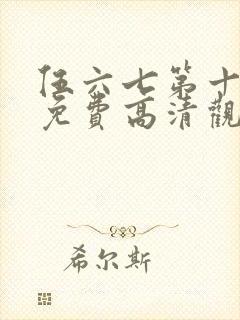 伍六七第十
免费高清觀
希尔斯